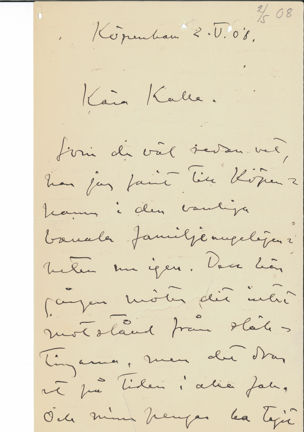 2/5 08
Köpenhamn 2.V.08.
Kära Kalle.
Som du väl redan vet,
har jag farit till Köpen=
hamn i den vanliga
banala familjeangelägen=
heten nu igen. Den här
gången möter det intet
motstånd från släk=
tingarna, men det drar
ut på tiden i alla fall.
Och mina pengar ha tagit